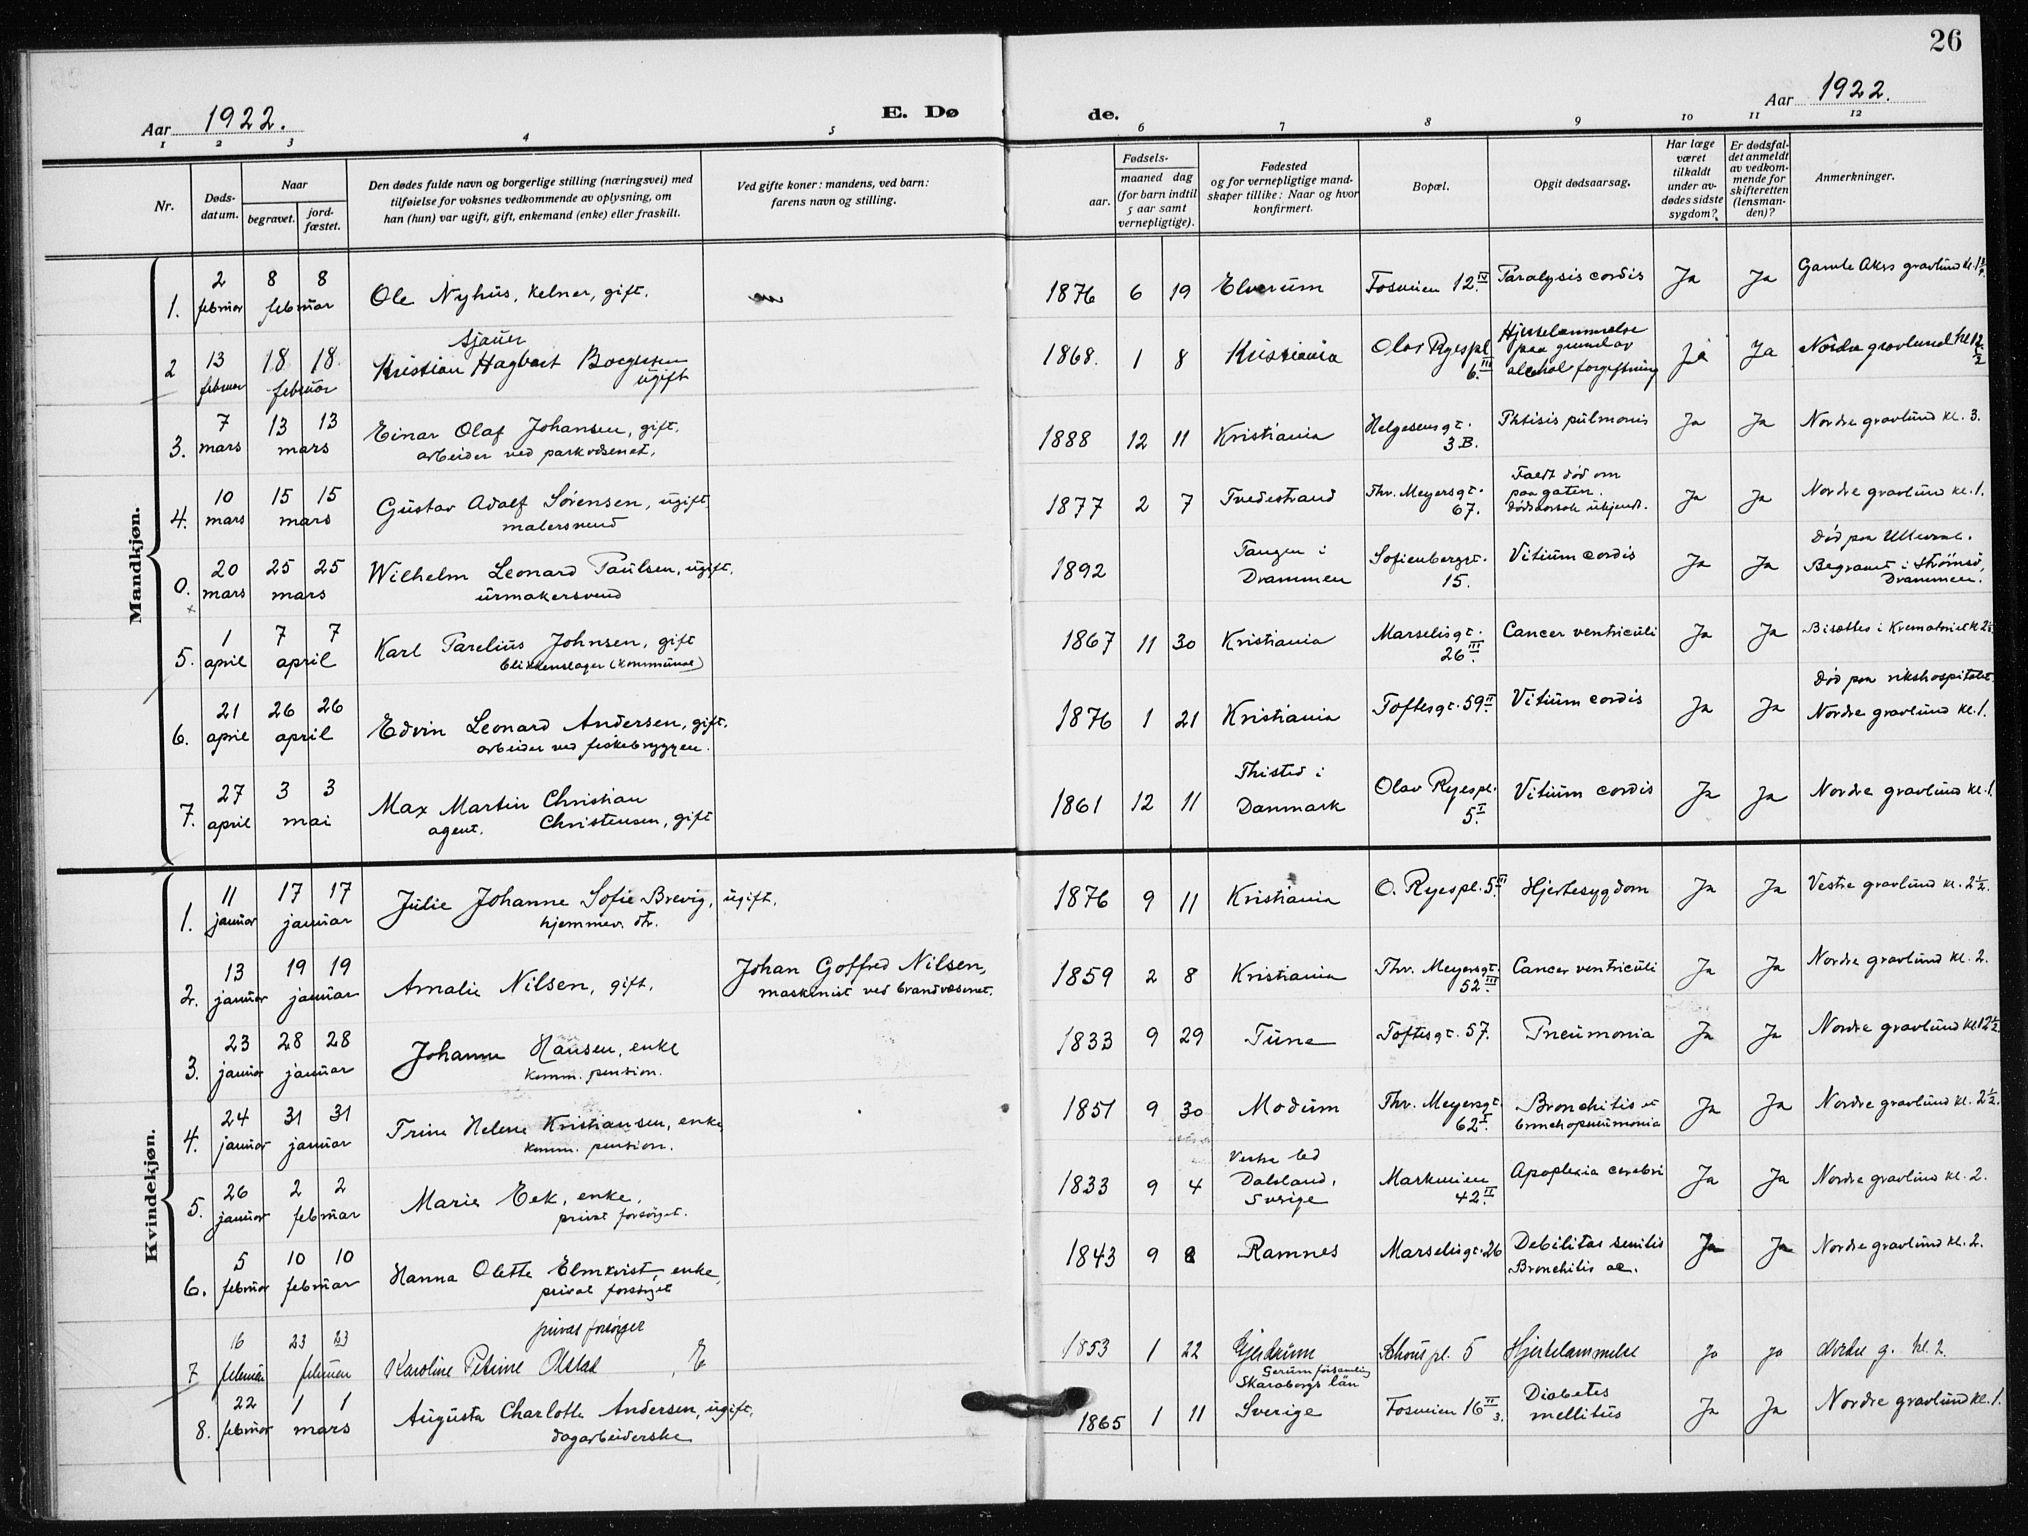 26
Aar 1922.
E. Dø
de.
Aar 1922.
1 2 3 4 5 6 7 8 9 10 11 12
Nr.
Døds-
datum.
Naar
begravet.
jord-
fæstet.
Den dødes fulde navn og borgerlige stilling (næringsvei) med
tilføielse for voksnes vedkommende av oplysning, om
han (hun) var ugift, gift, enkemand (enke) eller fraskilt.
Ved gifte koner: mandens, ved barn:
farens navn og stilling.
Fødsels-
aar.
maaned dag
(for barn indtil
5 aar samt
vernepligtige).
Fødested
og for vernepligtige mand-
skaper tillike: Naar og hvor
konfirmert.
Bopæl.
Opgit dødsaarsag.
Har læge
været
tilkaldt
under av-
dødes sidste
sygdom?
Er dødsfal-
det anmeldt
av vedkom-
mende for
skifteretten
(lensman-
den)?
Anmerkninger.
Mandkjøn.
1. 2 februar 8 8 februar Ole Nyhus, kelner, gift. 1876 6 19 Elverum Fosveien 12 IV Paralysis cordis Ja Ja Gamle Akers gravlund kl.
Sjauer
2 13 februar 18 18. februar Kristian Hagbart Borgersen
ugift
1868. 1 8 Kristiania Olav Ryespl.
6. III
Hjertelammelse
paa grund av
alcohol forgiftning
Ja Ja Nordre gravlund kl 12 1/2
3. 7 mars 13 13 mars Einar Olaf Johansen, gift.
arbeider ved parkvæsenet.
1888 12 11 Kristiania Helgesensgt.
3 B.
Phtisis pulmonis Ja Ja Nordre gravlund kl. 3.
4. 10 mars 15 15 mars Gustav Adolf Sørensen, ugift,
malersvend
1877 2 7 Tvedestrand Thv. Meyersgt.
67.
Faldt død om
paa gaten.
dødsaarsak ukjendt.
Ja Ja Nordre gravlund kl. 1.
0. 20 mars 25 25 mars Wilhelm Leonard Paulsen, ugift,
urmakersvend
1892 Tangen i
Drammen
Sofienberggt.
15.
Vitium cordis Ja Ja
Død paa Ullevaal.
Begravet i Strømsø,
Drammen.
5. 1 april 7 7 april Karl Parelius Johnsen, gift
blikkenslager (kommunal)
1867 11 30 Kristiania Marselisgt.
26 III.
Cancer ventriculi Ja Ja Bisættes i Krematoriet kl 2
6. 21 april 26 26 april Edvin Leonard Andersen, gift.
arbeider ved fiskebryggen.
1876 1 21 Kristiania Toftesgt. 59 II Vitium cordis Ja Ja
Død paa rikshospitalet.
Nordre gravlund kl. 1.
7. 27 april 3 3 mai Max Martin Christian
agent. Christensen, gift
1861 12 11 Thisted i
Danmark
Olav Ryespl.
5 I.
Vitium cordis Ja Ja Nordre gravlund kl. 1.
Kvindekjøn.
1. 11 januar 17 17 januar Julie Johanne Sofie Brevig, ugift.
hjemmev. dtr.
1876 9 11 Kristiania O. Ryespl. 5 III Hjertesygdom Ja Ja Vestre gravlund kl. 2 1/2.
2. 13 januar 19 19 januar Amalie Nilsen, gift. Johan Gotfred Nilsen,
maskinist ved brandvæsenet.
1859 2 8 Kristiania Thv. Meyersgt.
52 III.
Cancer ventriculi Ja Ja Nordre gravlund kl. 2.
3. 23 januar 28 28 januar Johanne Hansen, enke
komm. pension.
1833 9 29 Tune Toftesgt. 57. Pneumonia Ja Ja Nordre gravlund kl 12 1/2.
4. 24 januar 31 31 januar Trine Helene Kristiansen, enke,
komm. pension.
1851 9 30 Modum Thv. Meyersgt.
62 I.
Bronchitis et
bronchopneumonia
Ja Ja Nordre gravlund kl. 2 1/2.
5. 26 januar 2 2 februar Marie Eek, enke.
privat forsørget.
1833 9 4
Dalsland,
Sverige
Markveien
42 II.
Apoplexia cerebri Ja Ja Nordre gravlund kl. 2.
6. 5 februar 10 10 februar Hanna Olette Elmkvist, enke,
privat forsørget
1843 9 8 Ramnes Marselisgt. 26 Debilitas senilis
Bronchitis ac.
Ja Ja Nordre gravlund kl. 2.
privat forsørget
7 16 februar 23 23 februar Karoline Petrine Olstad, E
1853 1 22 Gjerdrum Schous pl. 5 Hjertelammelse Ja Ja Østre g. kl. 2.
8. 22 februar 1 1 mars Augusta Charlotte Andersen, ugift.
dagarbeiderske
1865 1 11 Gerum församling
Skaraborgs län
Sverige
Fosveien 16 II
3.
Diabetes
mellitus
Ja Ja Nordre gravlund kl. 1.